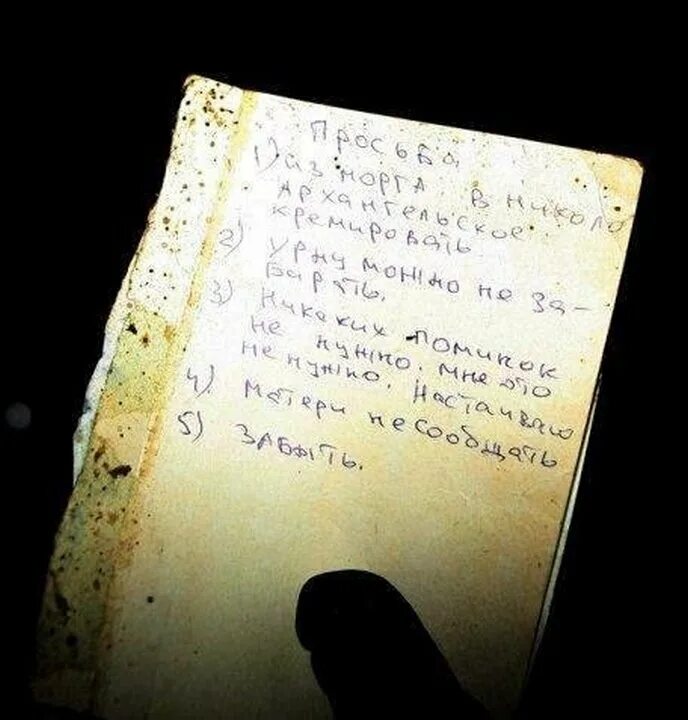 Просьба
1) из морга в Николо
Архангельское
кремировать.
2) урну можно не за-
бирать.
3) Никаких поминок
не нужно. мне это
не нужно. Настаиваю
4) Матери не сообщать
5) Забыть.